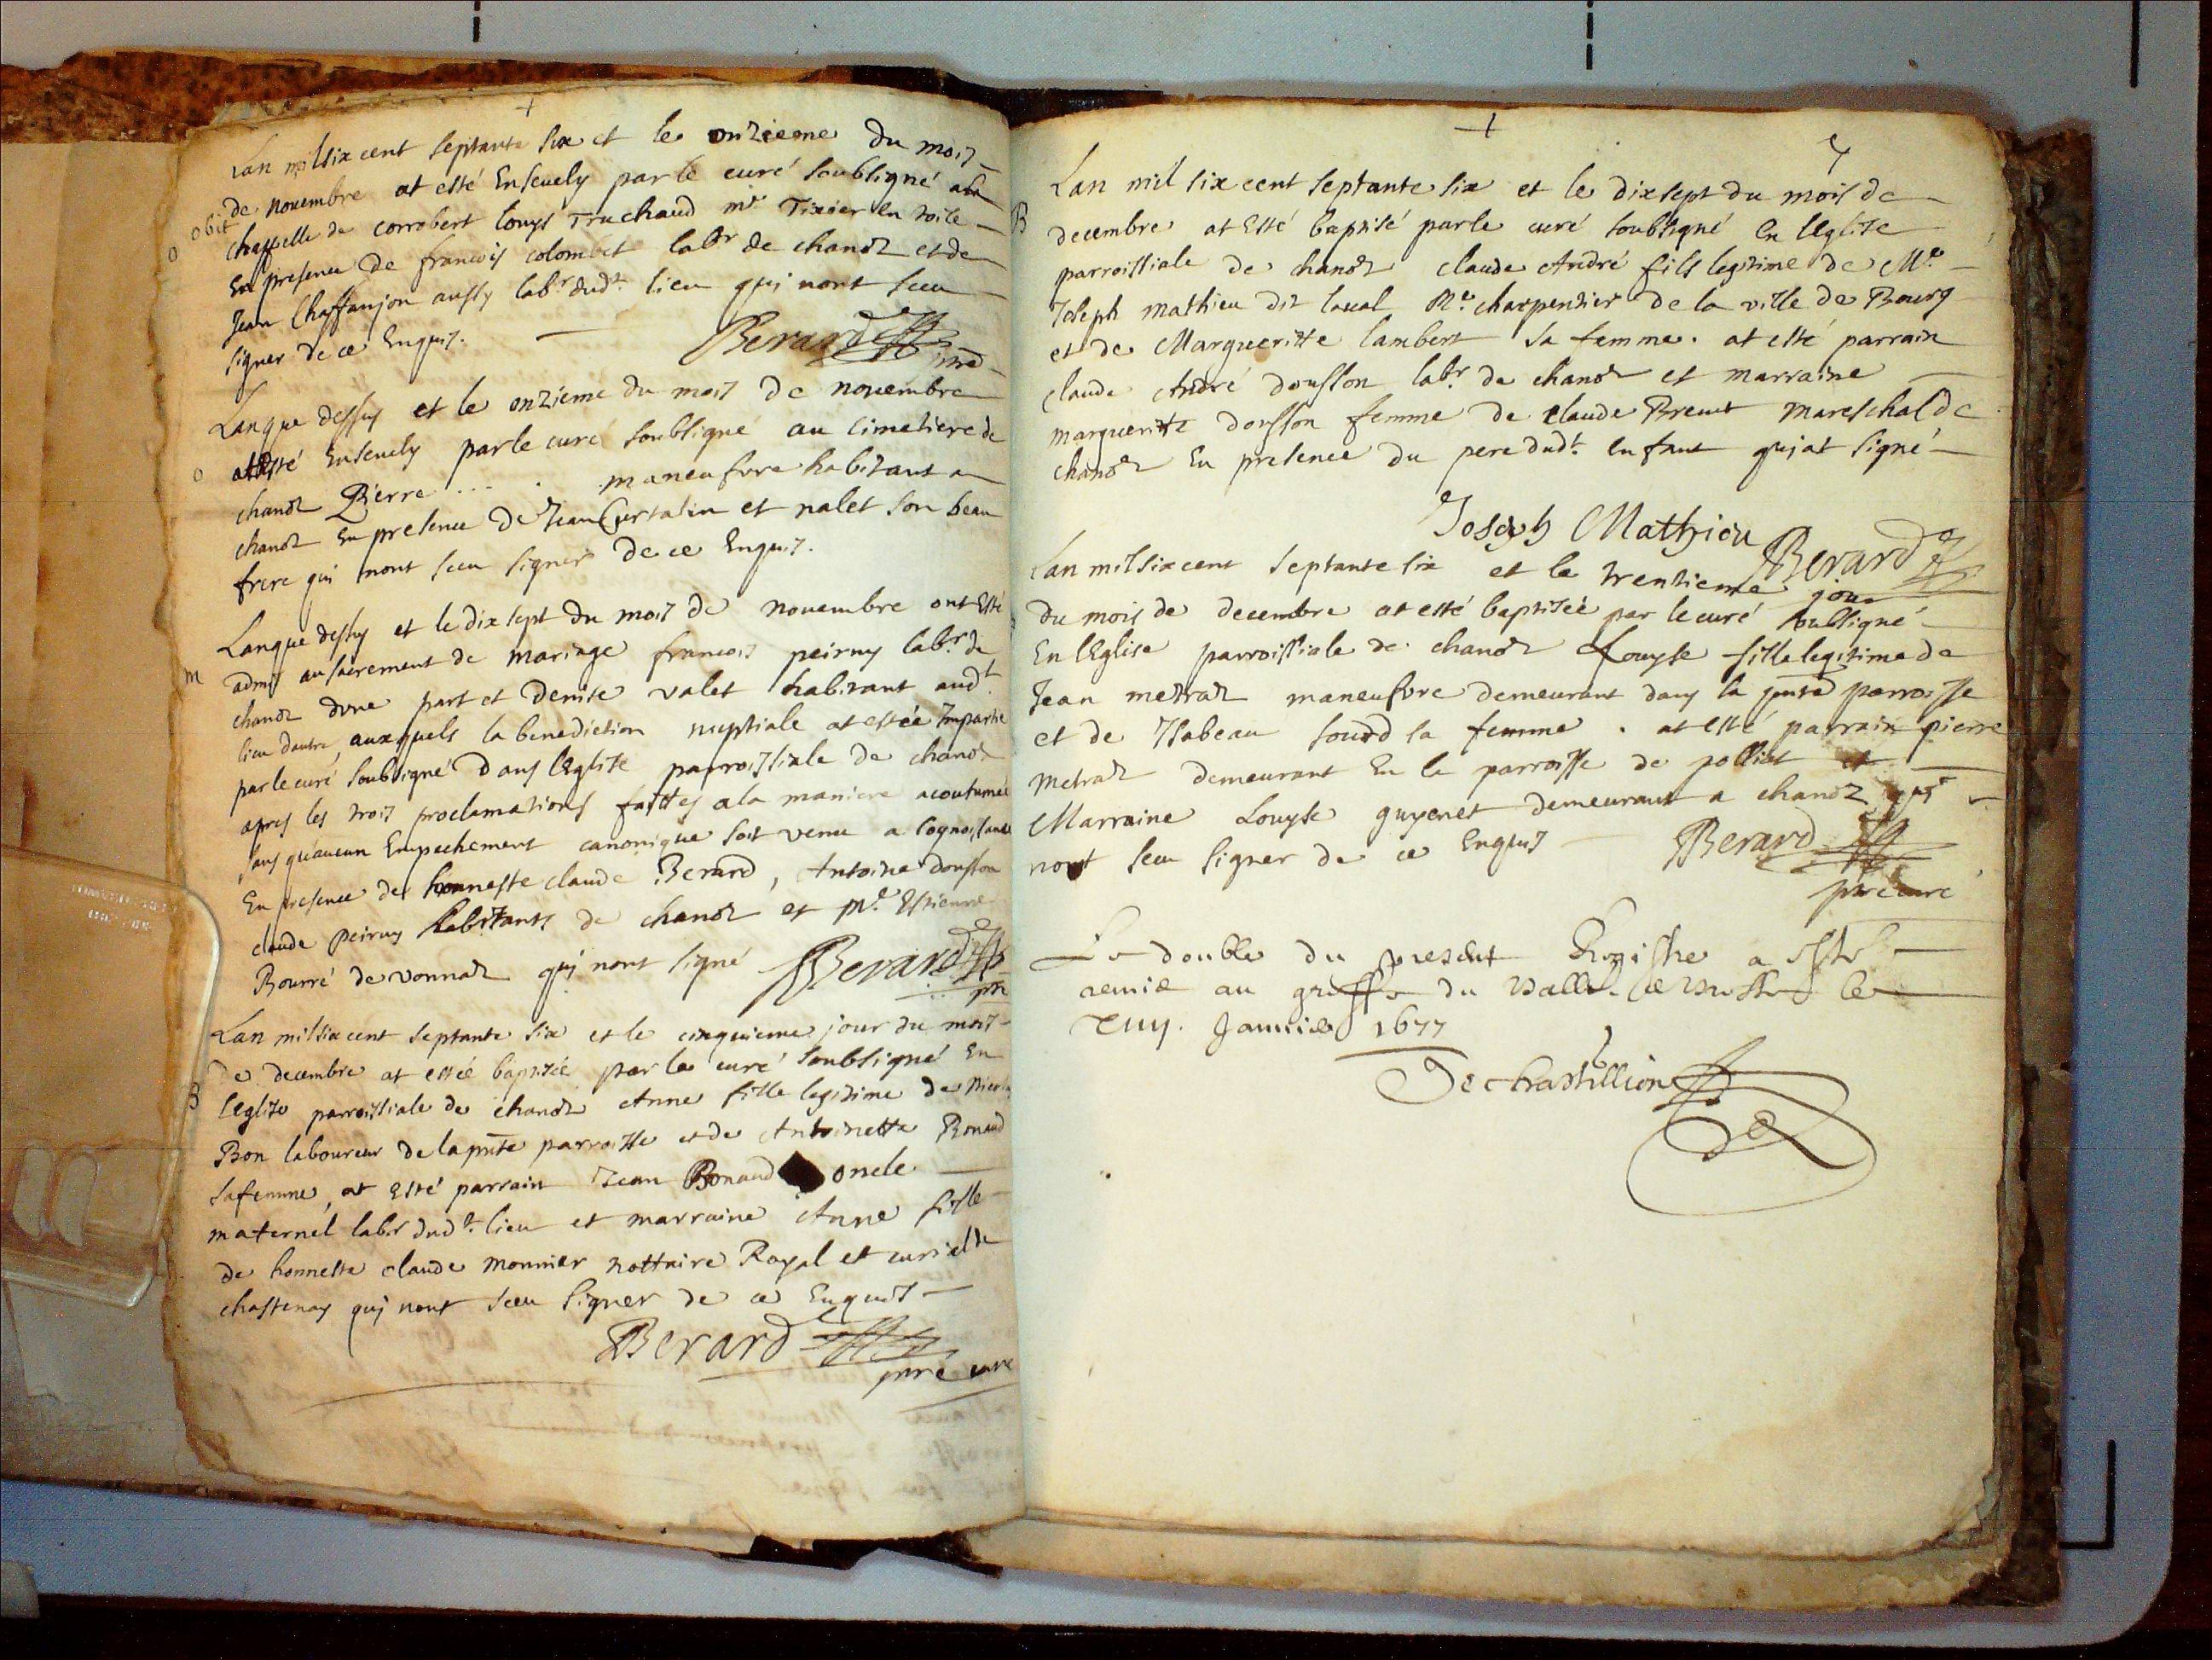 Lan mil six cent septante six et le onzieme du mois
obit
o
de nouembre at esté Enseuely par le curé soubsigné a la
chappelle de corrobert louys Truchaud mr Tixier en toile
En presence de francois colombet labr de chanoz et de
Jean Chaffanjon aussy labr dudt lieu qui nont sceu
signer de ce Enquis.
Berard
Lan que dessus et le onzieme du mois de nouembre
o
at esté Enseuely par le curé soubsigné au cimetiere de
chanoz Pierre .... maneufvre habitant a
chanoz En presence de Jean Curtalin et nalet son beau
frere qui nont sceu signer de ce Enquis.
Lan que dessus et le dix sept du mois de nouembre ont esté
m
admis au sacrement de mariage francois peiruy labr de
chanoz dune part et denise valet habitant audt
lieu dautre, auxquels la benediction nuptiale at estée Impartie
par le curé soubsigné dans lEglise parroissiale de chanoz
apres les trois proclamations faittes a la maniere acoutumée
sans quaucun Empechement canonique soit venu a cognoissance
En presence de honneste claude Berard, Antoine dousson
claude peiruy habitants de chanoz et Me Estienne
Bourré de vonnaz qui nont signé Berard
ptre
Lan mil six cent septante six et le cinquieme jour du mois
de decembre at estée baptisée par le curé soubsigné En
B
lEglise parroissiale de chanoz Anne fille legitime de Nicolas
Bon laboureur de la pnte parroisse et de Antoinette Bonaud
sa femme, at esté parrain Jean Bonaud oncle
maternel labr dudt lieu et marraine Anne fille
de honneste claude monnier nottaire Royal et curial de
chastenay qui nont sceu signer de ce Enquis
Berard
ptre curé
7
Lan mil six cent septante six et le dix sept du mois de
B
decembre at Esté baptisé par le curé soubsigné En lEglise
parroissiale de chanoz claude André fils legitime de Me
Joseph mathieu dit laual Me charpentier de la ville de Bourg
et de Margueritte lambert sa femme. at esté parrain
claude André dousson labr de chanoz et marraine
margueritte dousson femme de claude Breuet mareschal de
chanoz En presence du pere dudt enfant qui at signé
Joseph Mathieu
Berard
Lan mil six cent septante six et le trentieme jour
du mois de decembre at esté baptisée par le curé soubsigné
En lEglise parroissiale de chanoz Louyse fille legitime de
Jean metraz maneufvre demeurant dans la pnte parroisse
et de Isabeau sourd sa femme. at esté parrain pierre
metraz demeurant En la parroisse de polliat et
Marraine Louyse guyenet demeurant a chanoz qui
nont sceu signer de ce Enquis
Berard
ptre curé
Le double du present Registre a esté
remis au greffe du le
Januier 1677
De chastillion